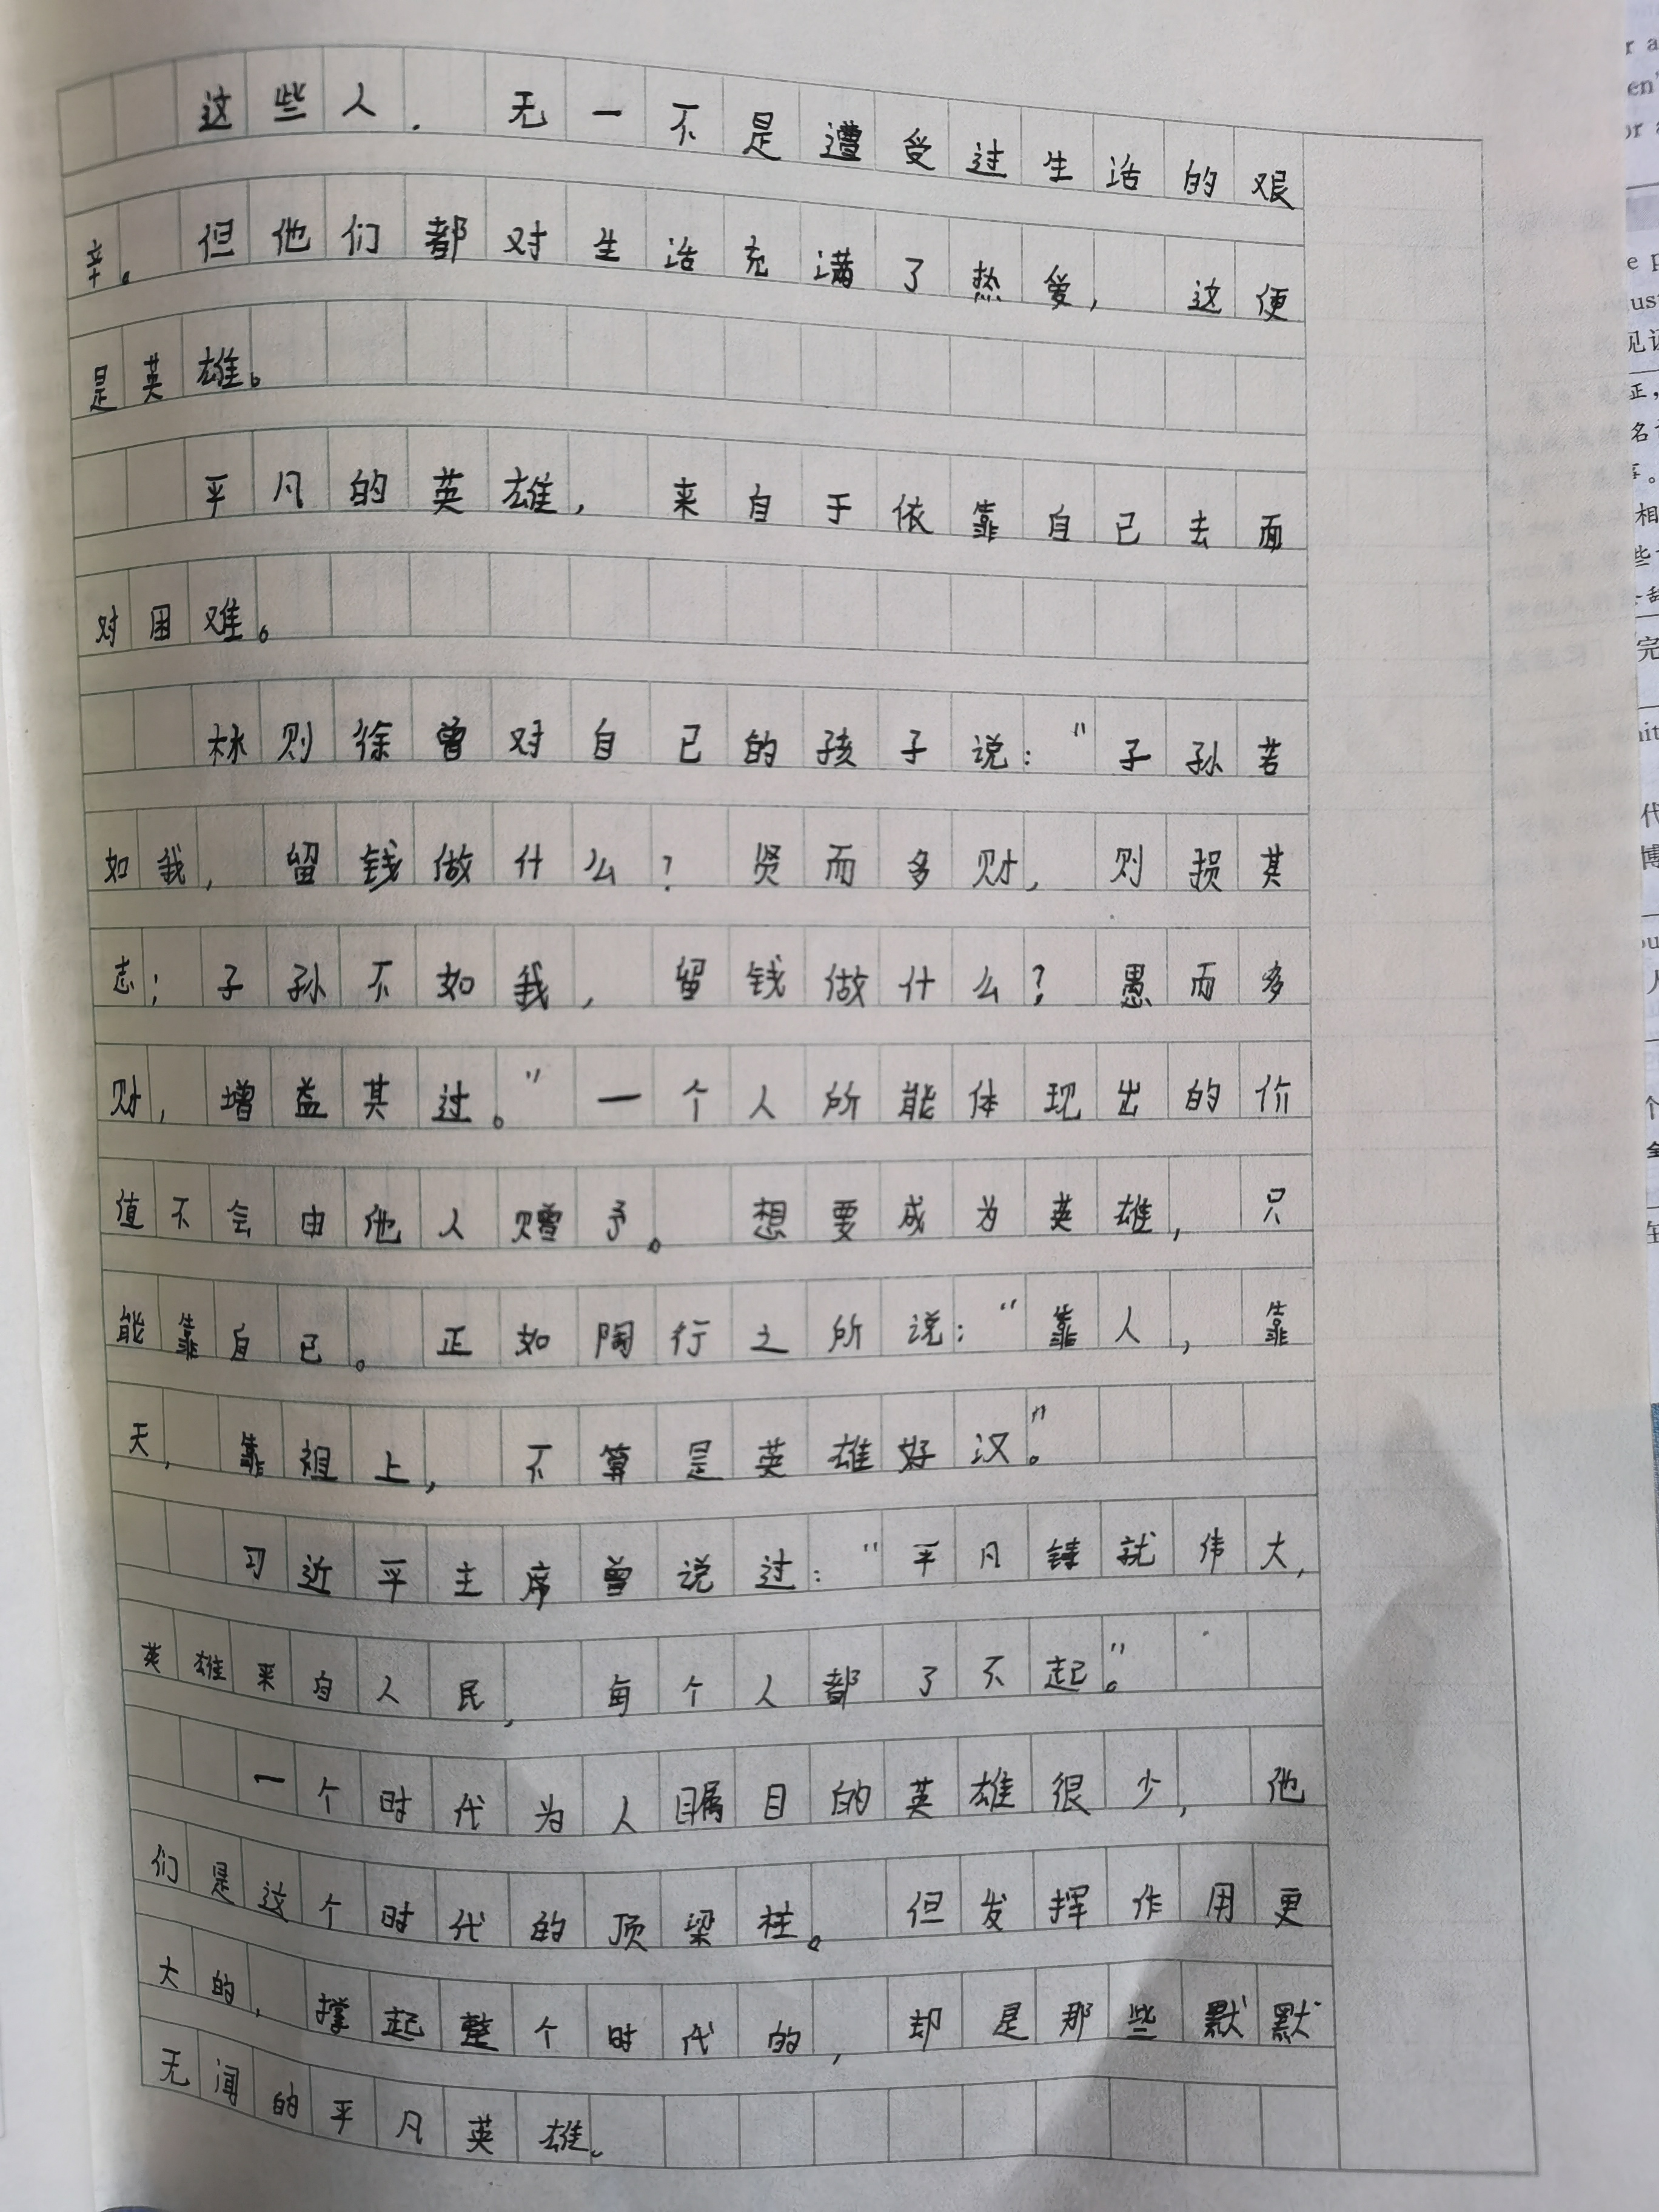 这些人，无一不是遭受过生活的艰
辛。但他们都对生活充满了热爱，这便
是英雄。
平凡的英雄，来自于依靠自己去面
对困难。
林则徐曾对自己的孩子说：“子孙若
如我，留钱做什么？贤而多财，则损其
志；子孙不如我，留钱做什么？愚而多
财，增益其过。”一个人所能体现出的价
值不会由他人赠予。想要成为英雄，只
能靠自己。正如陶行之所说：“靠人，靠
天，靠祖上，不算是英雄好汉。”
习近平主席曾说过：“平凡铸就伟大，
英雄来自人民，每个人都了不起。”
一个时代为人瞩目的英雄很少，他
们是这个时代的顶梁柱。但发挥作用更
大的，撑起整个时代的，却是那些默默
无闻的平凡英雄。